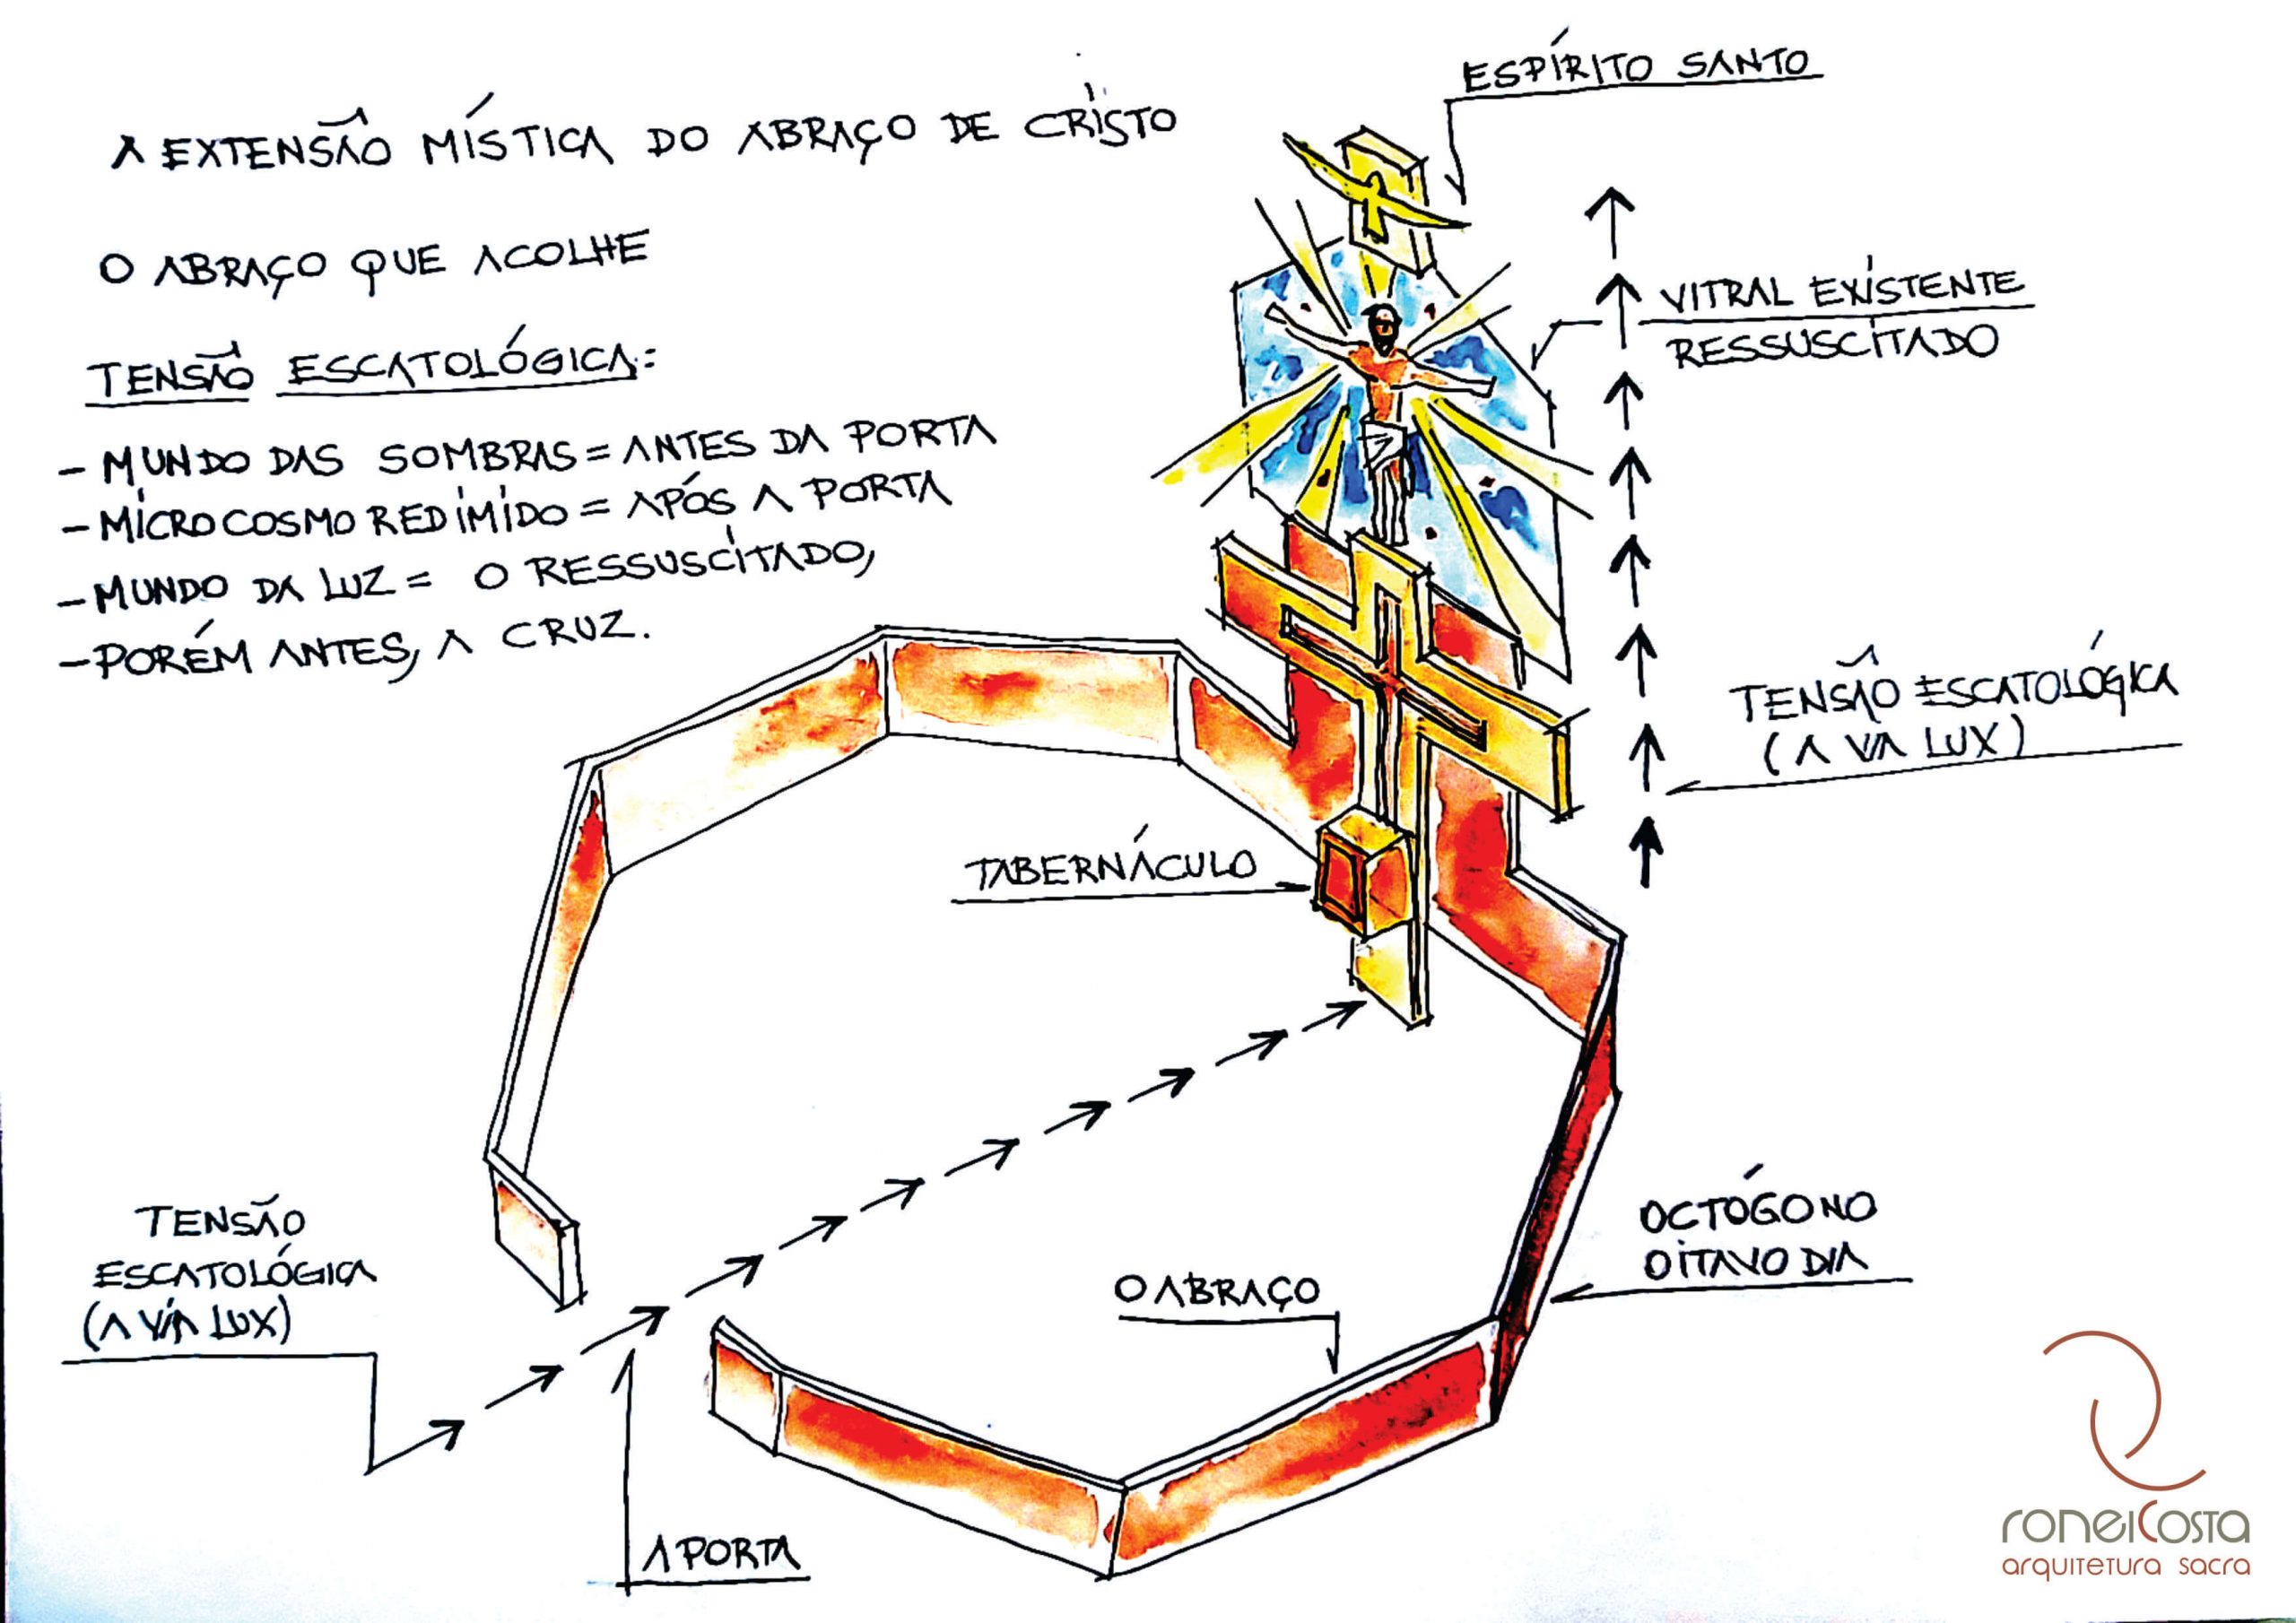 A EXTENSÃO MÍSTICA DO ABRAÇO DE CRISTO
O ABRAÇO QUE ACOLHE
TENSÃO ESCATOLÓGICA:
- MUNDO DAS SOMBRAS = ANTES DA PORTA
- MICROCOSMO REDIMIDO = APÓS A PORTA
- MUNDO DA LUZ = O RESSUSCITADO,
- PORÉM ANTES, A CRUZ.
ESPÍRITO SANTO
VITRAL EXISTENTE
RESSUSCITADO
TENSÃO ESCATOLÓGICA
(A VIA LUX)
TABERNÁCULO
TENSÃO
ESCATOLÓGICA
(A VIA LUX)
OCTÓGONO
OITAVO DIA
O ABRAÇO
A PORTA
roneiCosta
arquitetura sacra